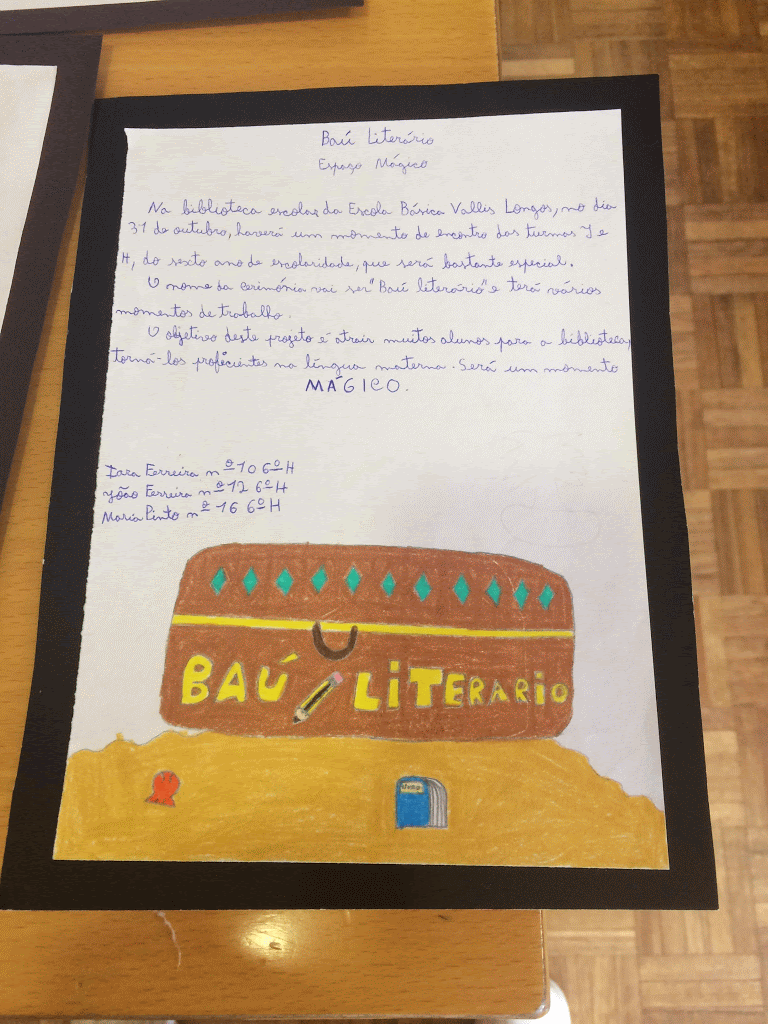 Baú Literário
Espaço Mágico
Na biblioteca escolar da Escola Básica Vallis Longos, no dia
31 de outubro, haverá um momento de encontro das turmas J e
H, do sexto ano de escolaridade, que será bastante especial.
O nome da cerimónia vai ser "Baú literário" e terá vários
momentos de trabalho.
O objetivo deste projeto é atrair muitos alunos para a biblioteca,
torná-los proficientes na língua materna. Será um momento
MÁGICO.
Iara Ferreira nº 10 6º H
João Ferreira nº 12 6º H
Maria Pinto nº 16 6º H
BAÚ LITERARIO